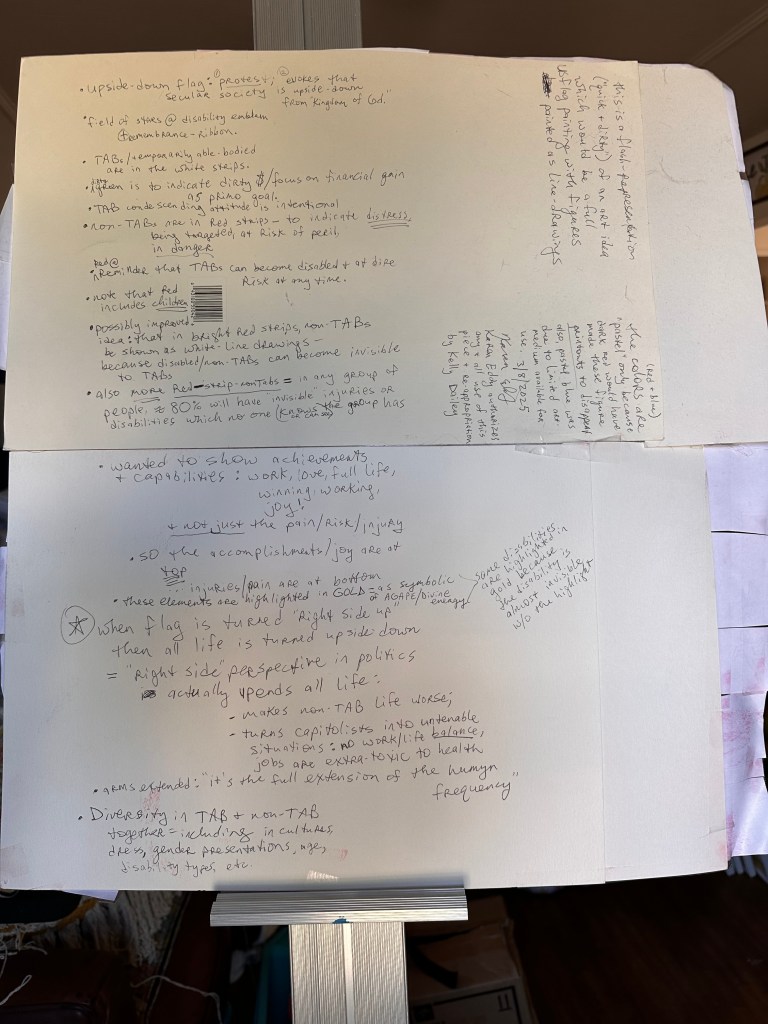 • Upside-down flag: ① protest; ② evokes that
secular society is upside-down
from "Kingdom of God."
• field of stars @ disability emblem
+ remembrance-ribbon.
• TABs/temporarily able-bodied
are in the white strips.
• green is to indicate dirty $/focus on financial gain
as primo goal.
• TAB condescending attitude is intentional
• non-TABs are in Red strips – to indicate distress,
being targeted, at Risk of peril,
in danger
Red @
• Reminder that TABs can become disabled + at dire
Risk at any time.
• note that Red
includes children
• possibly improved
idea: that in bright Red strips, non-TABs
be shown as white-line drawings –
because disabled/non-TABs can become invisible
to TABs
• also more Red-strip-nonTABs = in any group of
people, ≈ 80% will have "invisible" injuries or
disabilities which no one in the group has
this is a flash-representation
("quick + dirty") of an art idea
which would be a full
US flag painting with figures
painted as line-drawings
~ the colors are
(red + blue)
"pastel" only because
dark red would have
made these figure
printouts to disappear
also, pastel blue was
due to limited art
medium available for
use. 3/8/2025
Karen Eddy
Karen Eddy authorizes
any/all use of this
piece + re-appropriation
by Kelly Dailey
• wanted to show achievements
+ capabilities: work, love, full life,
winning, working,
joy!
+ not just the pain/Risk/injury
• so the accomplishments/joy are at
top
... injuries/pain are at bottom
• these elements are highlighted in GOLD = as symbolic
of AGAPE/Divine
energy
some disabilities
are highlighted in
gold because
the disability is
almost invisible
w/o the highlight
☆ when flag is turned "Right side up"
then all life is turned upside down
= "Right side" perspective in politics
actually upends all life:
- makes non-TAB life worse;
- turns capitolists into untenable
situations: no work/life balance,
jobs are extra-toxic to health
• arms extended: "it's the full extension of the humyn
frequency"
• Diversity in TAB + non-TAB
together = including in cultures,
dress, gender presentations, age,
disability types, etc.